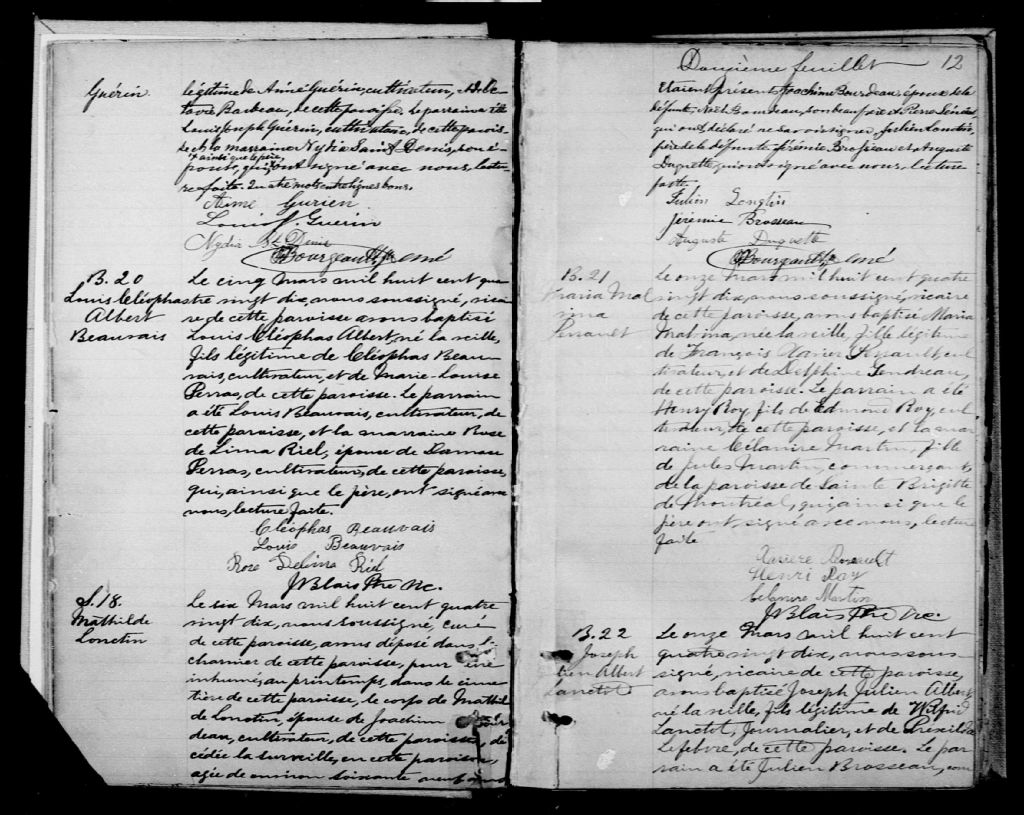 Guérin
légitime de Aimé Guérin, cultivateur, et de
Barbeau, de cette paroisse. Le parrain a été
Louis Joseph Guérin, cultivateur, de cette parois-
se et la marraine Nydia Saint Denis, son é-
+ ainsi que le père,
pouse, qui, ont signé avec nous, lectu-
re faite. Quatre mots entrelignes bons.
Aimé Gurien
Louis J. Guerin
Nydia St Denis
Bourgeault Ptre curé
B. 20
Louis Cléophas
Albert
Beauvais
Le cinq Mars mil huit cent qua
tre vingt dix, nous soussigné, vicai
re de cette paroisse avons baptisé
Louis Cléophas Albert, né la veille,
fils légitime de Cléophas Beau-
vais, cultivateur, et de Marie-Louise
Perras, de cette paroisse. Le parrain
a été Louis Beauvais, cultivateur, de
cette paroisse, et la marraine Rose
de Lima Riel, épouse de Damase
Perras, cultivateur, de cette paroisse,
qui, ainsi que le père, ont signé avec
nous, lecture faite.
Cléophas Beauvais
Louis Beauvais
Rose Delima Riel
JVBlais Ptre Vic.
S. 18.
Mathilde
Lonctin
Le six Mars mil huit cent quatre
vingt dix, nous soussigné, curé
de cette paroisse, avons déposé dans le
charnier de cette paroisse, pour être
inhumé, au printemps, dans le cime
tière de cette paroisse, le corps de Mathil
de Lonctin, épouse de Joachim Bour
deau, cultivateur, de cette paroisse, dé
cédée la surveille, en cette paroisse,
agée de environ soixante
Douzième feuillet 12
Etaient présents Joachim Bourdeau, époux de la
défunte, Noël Bourdeau, son beau frère et Pierre
qui ont déclaré ne savoir signer, Julien Lonctin,
frère de la defunte Jérémie Brosseau et Auguste
Duquette qui ont signé avec nous. Lecture
faite
Julien Longtin
Jérémie Brosseau
Auguste Duquette
Bourgeault Ptre curé
B. 21
Maria Mal
vina
Perrault
Le onze Mars mil huit cent quatre
vingt dix, nous soussigné, vicaire
de cette paroisse, avons baptisé Maria
Malvina, née la veille, fille légitime
de François Xavier Perrault, cul
tivateur, et de Delphine Lendreau,
de cette paroisse. Le parrain a été
Henry Roy, fils de Edmond Roy, cul
tivateur, de cette paroisse, et la mar
raine Célanire Martin, fille
de Jules Martin, commerçant,
de la paroisse de Sainte Brigitte
de Montréal, qui, ainsi que le
père ont signé avec nous, lecture
faite
Xaviere Perrault
Henri Roy
Celanire Martin
JVBlais Ptre Vic.
B. 22
Joseph
Julien Albert
Lanctot
Le onze Mars mil huit cent
quatre vingt dix, nous sous
signé, vicaire de cette paroisse,
avons baptisé Joseph Julien Albert
né la veille, fils légitime de Wilfrid
Lanctot, Journalier, et de Prexilda
Lefebvre, de cette paroisse. Le par
rain a été Julien Brosseau,